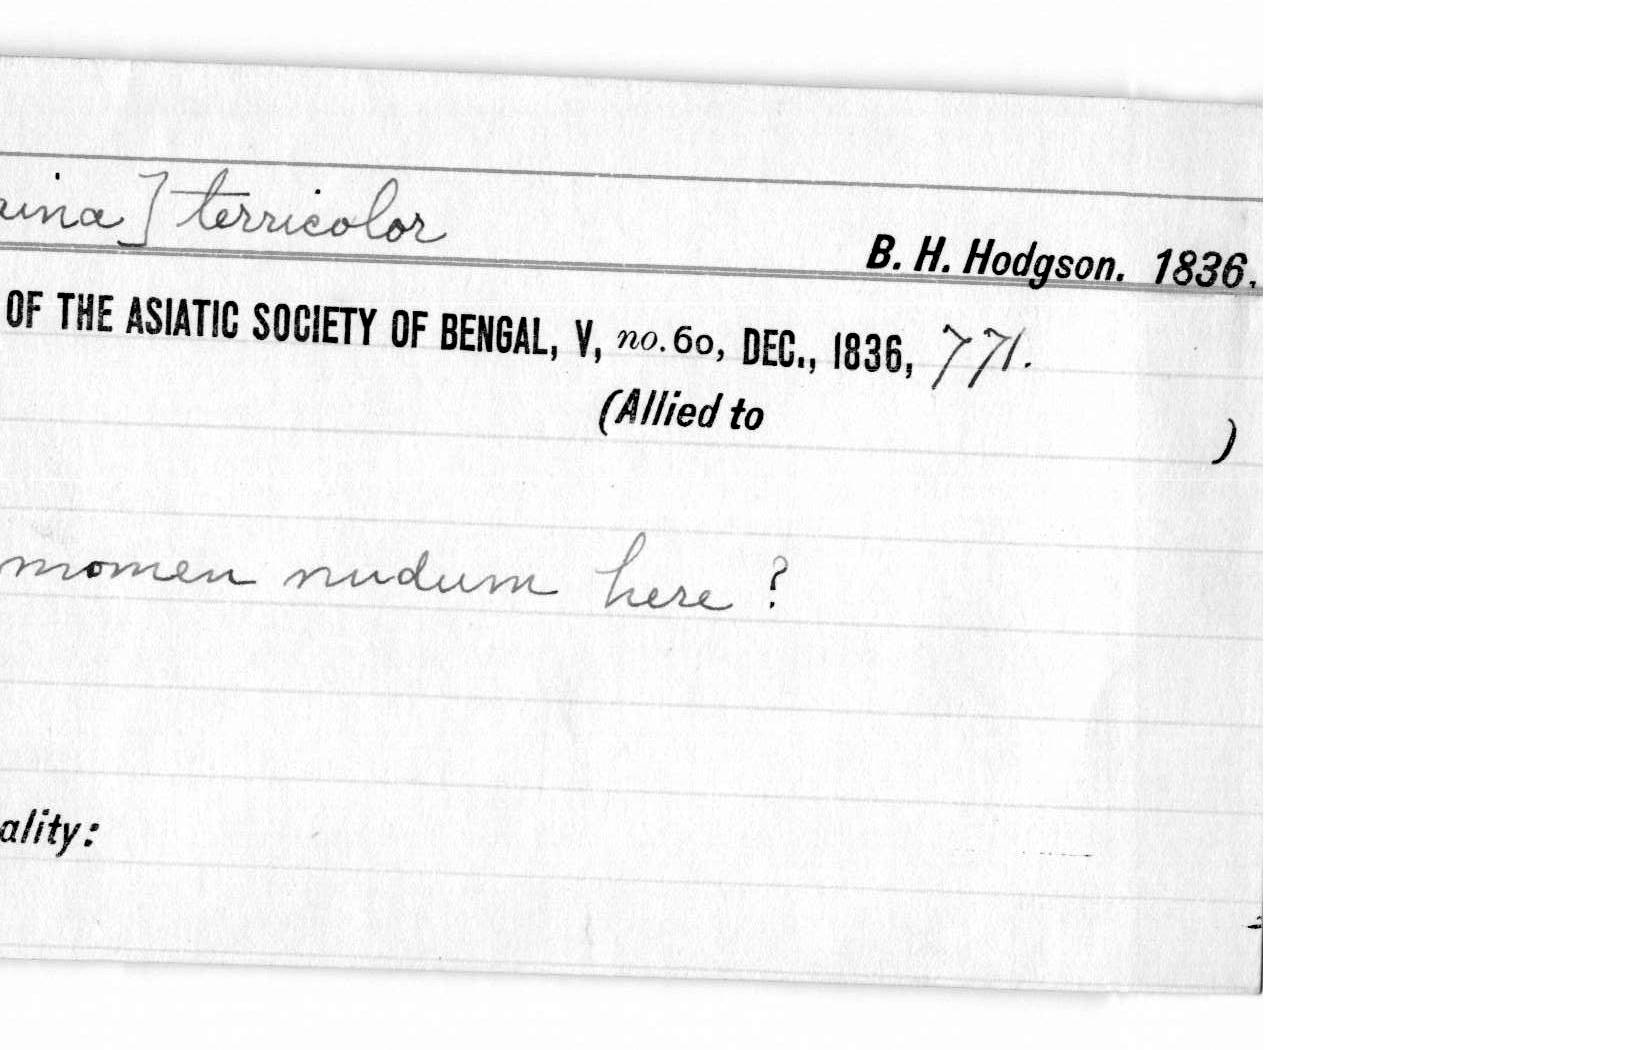 rina] terricolor
B. H. Hodgson. 1836.
OF THE ASIATIC SOCIETY OF BENGAL, V, no. 60, DEC., 1836, 771.
(Allied to )
nomen nudum here ?
ality: